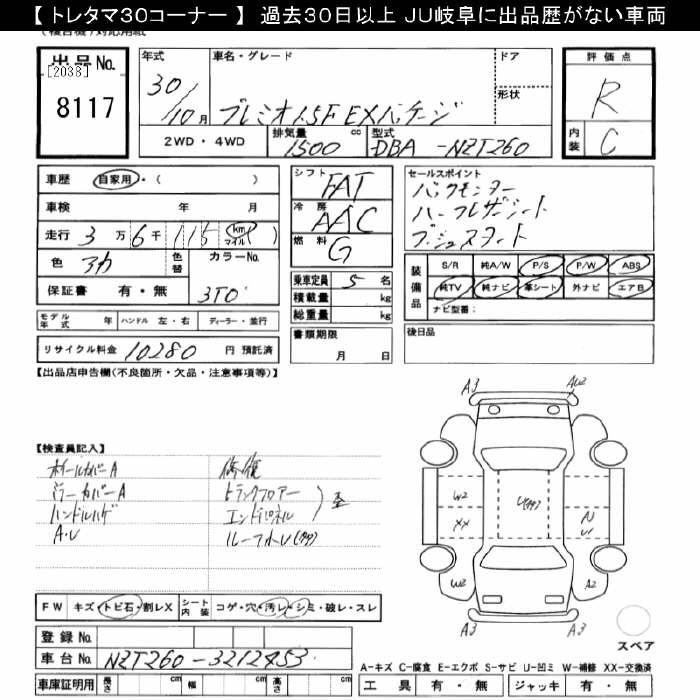 【トレタマ30コーナー】 過去30日以上 JU岐阜に出品歴がない車両
出品No.
[2038]
8117
年式
30/10月
車名・グレード
プレミオ 1.5F EXパッケージ
ドア
形状
2WD・4WD
排気量 1500 cc
型式 DBA-NZT260
評価点
R
内装 C
車歴 自家用・( )
車検 年 月
走行 3万6千115 km マイル
色 アカ
色替
カラーNo. 3T0
保証書 有・無
シフト FAT
冷房 AAC
燃料 G
乗車定員 5名
積載量 kg
総重量 kg
セールスポイント
バックモニター
ハーフレザーシート
プッシュスタート
装備品
S/R 純A/W P/S P/W ABS
純TV 純ナビ 革シート 外ナビ エアB
ナビ型番:
モデル年式 年 ハンドル 左・右 ディーラー・並行
リサイクル料金 10280 円 預託済
書類期限 月 日
後日品
【出品店申告欄(不良箇所・欠品・注意事項等)】
【検査員記入】
ホイールカバーA
ミラーカバーA
ハンドルハゲ
A・U
修復
トランクフロアー
エンドパネル
ルーフ
A3
AU2
W2
XX
W2
A2
A3
A3
FW キズ・トビ石・割レX
シート内装 コゲ・穴・汚レ・シミ・破レ・スレ
登録No.
車台No. NZT260-3212453
車庫証明用 長さ cm 幅 cm 高さ cm
スペア
A-キズ C-腐食 E-エクボ S-サビ U-凹ミ W-補修 XX-交換済
工具 有・無 ジャッキ 有・無